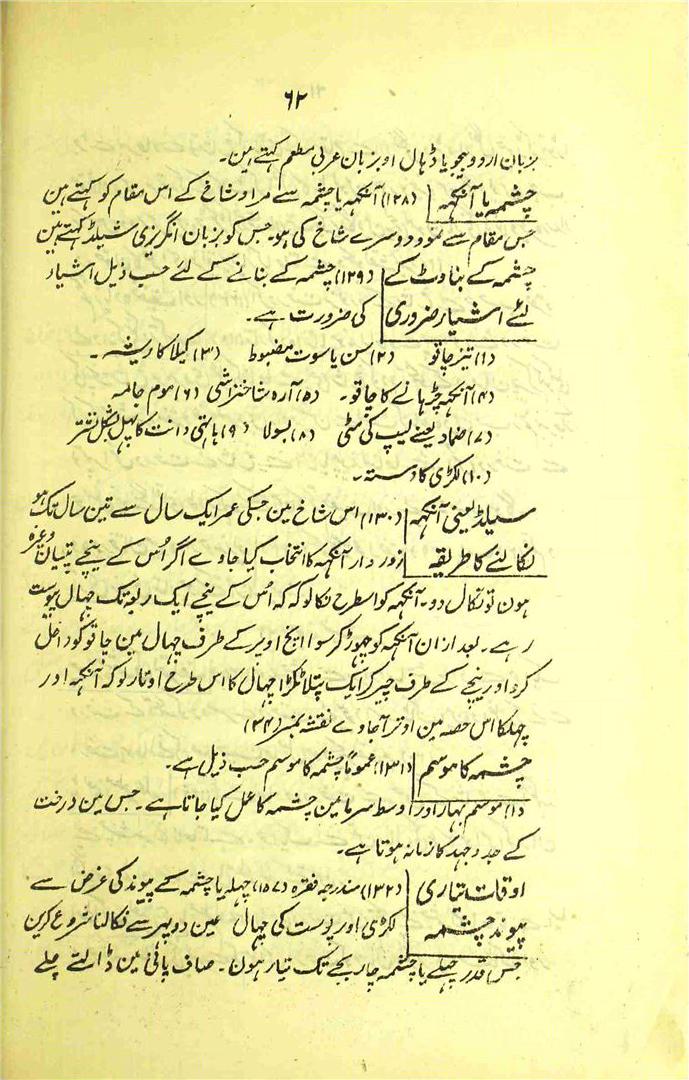 ۶۲
بزبان اردو بیجو یا ڈہال اوبزبان عربی مطعم کہتے ہین۔
چشمہ یا آنکہہ (۱۲۸) آنکہہ یا چشمہ سے مراد شاخ کے اس مقام کو کہتے ہین
جس مقام سے نمود دوسرے شاخ کی ہو۔ جس کو بزبان انگریزی شیلڈ کہتے ہین
چشمہ کے بناوٹ کے (۱۲۹) چشمہ کے بنانے کے لئے حسب ذیل اشیاء
لئے اشیار ضروری کی ضرورت ہے۔
(۱) تیز چاقو (۲) سن یا سوت مضبوط (۳) کیلا کا ریشہ۔
(۴) آنکہہ چڑہانے کا چاقو۔ (۵) آرہ شاختراشی (۶) موم جامہ
(۷) ضماد یعنے لیپ کی مٹی (۸) بسولا (۹) ہاتی دانت کا پہل بشکل نشتر
(۱۰) لکڑی کا دستہ۔
سیلڈ یعنی آنکہہ (۱۳۰) اس شاخ مین جسکی عمر ایک سال سے تین سال تک ہو
نکالنے کا طریقہ زور دار آنکہہ کا انتخاب کیا جاوے اگر اُس کے نیچے پتیان وغیرہ
ہون تو نکال دو۔ آنکہہ کو اسطرح نکالو کہ کہ اُس کے نیچے ایک ربعہ تک چہال پیوست
رہے۔ بعد ازان آنکہہ کو چہوڑ کر سوا انچ اوپر کے طرف چہال مین چاقو کو داخل
کرو اور نیچے کے طرف چیر کر ایک پتلا ٹکڑا چہال کا اس طرح اوتار لو کہ آنکہہ اور
چہلکا اس حصہ مین اوتر آجاوے نقشہ نمبر (۳۴)
چشمہ کا موسم (۱۳۱) عموماً چشمہ کا موسم حسب ذیل ہے۔
(۱) موسم بہار اور اوسط سرما مین چشمہ کا عمل کیا جاتا ہے۔ جس مین درخت
کے جد وجہد کا زمانہ ہوتا ہے۔
اوقات تیاری (۱۳۲) مندرجہ فقرہ (۱۵۷) چہلہ یا چشمہ کے پیوند کی غرض سے
پیوند چشمہ لکڑی اور پوست کی چہال عین دوپہر سے نکالنا شروع کرین
جس قدر چہلے یا چشمہ چار بجے تک تیار ہون۔ صاف پانی مین ڈالتے چلے